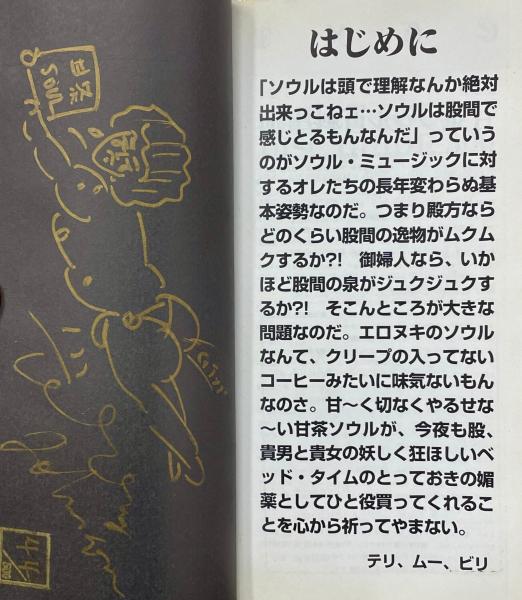 はじめに
「ソウルは頭で理解なんか絶対
出来っこねェ…ソウルは股間で
感じとるもんなんだ」っていう
のがソウル・ミュージックに対
するオレたちの長年変わらぬ基
本姿勢なのだ。つまり殿方なら
どのくらい股間の逸物がムクム
クするか?!　御婦人なら、いか
ほど股間の泉がジュクジュクす
るか?!　そこんところが大きな
問題なのだ。エロヌキのソウル
なんて、クリープの入ってない
コーヒーみたいに味気ないもん
なのさ。甘〜く切なくやるせな
〜い甘茶ソウルが、今夜も股、
貴男と貴女の妖しく狂ほしいベ
ッド・タイムのとっておきの媚
薬としてひと役買ってくれるこ
とを心から祈ってやまない。
テリ、ムー、ビリ
甘茶
SOUL
44
/500